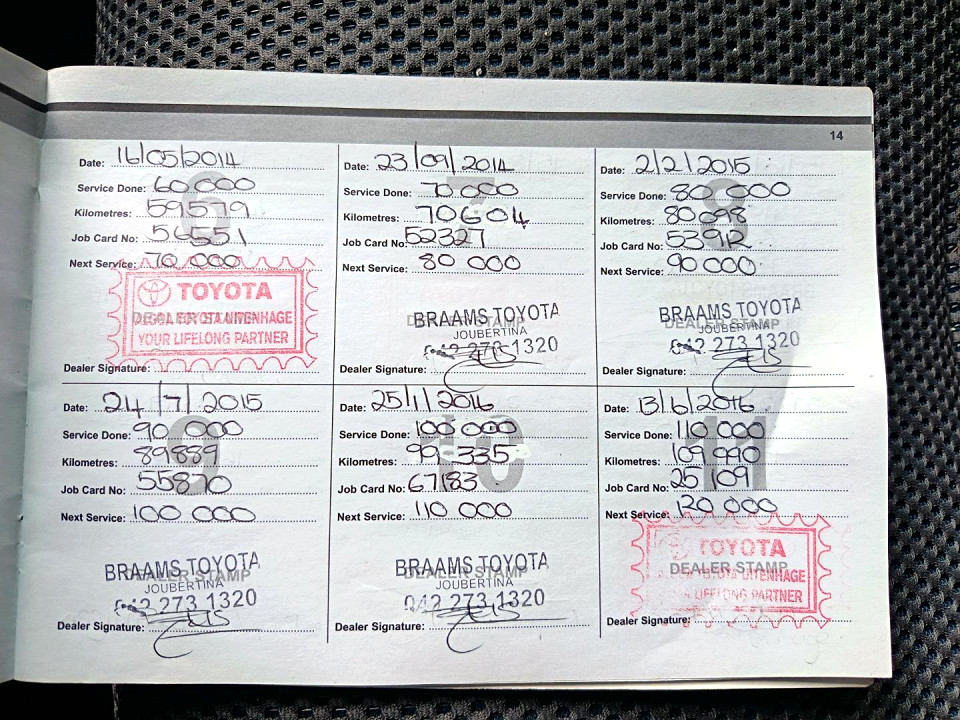 14
Date: 16/05/2014
Service Done: 60 000
Kilometres: 59579
Job Card No: 51551
Next Service: 70 000
TOYOTA
DEALER STAMP
UITENHAGE
YOUR LIFELONG PARTNER
Dealer Signature:
Date: 23/09/2014
Service Done: 70 000
Kilometres: 70604
Job Card No: 52327
Next Service: 80 000
DEALER STAMP
BRAAMS TOYOTA
JOUBERTINA
042 273 1320
Dealer Signature:
8
Date: 2/2/2015
Service Done: 80 000
Kilometres: 80098
Job Card No: 53912
Next Service: 90 000
DEALER STAMP
BRAAMS TOYOTA
JOUBERTINA
042 273 1320
Dealer Signature:
9
Date: 24/7/2015
Service Done: 90 000
Kilometres: 89889
Job Card No: 55870
Next Service: 100 000
DEALER STAMP
BRAAMS TOYOTA
JOUBERTINA
042 273 1320
Dealer Signature:
10
Date: 25/1/2016
Service Done: 100 000
Kilometres: 99 335
Job Card No: 67183
Next Service: 110 000
DEALER STAMP
BRAAMS TOYOTA
JOUBERTINA
042 273 1320
Dealer Signature:
11
Date: 13/6/2016
Service Done: 110 000
Kilometres: 109 990
Job Card No: 25 109
Next Service: 120 000
TOYOTA
DEALER STAMP
TOYOTA UITENHAGE
LIFELONG PARTNER
Dealer Signature: